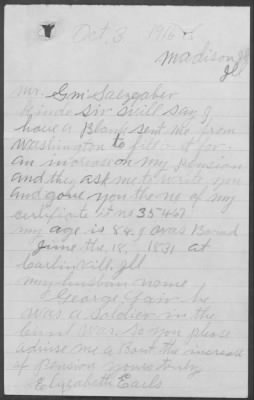 Oct 3 1916
Madison Ill
Mr. Gm Saezgaber
Kinde Sir Will say I
have a Blank sent me from
Washington to fill out for
an increase on my pension
and they ask me to write you
and gave you the no of my
certificate it no 35467
my age is 88. I was Boried
June the, 18, 1831 at
Carlinvill. Ill
my husban name
George Fair he
was a Soldier in the
Civil War. So you please
advise me a Bout the increase
of Pension yours truly
Elizabeth Earls